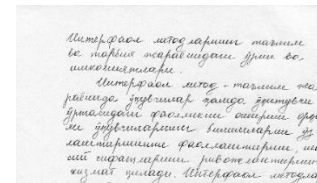 Интерфаол методларнинг таълим
ва тарбия жараёнидаги ўрни ва
имкониятлари.
Интерфаол метод - таълим жа
раёнида ўқувчилар ҳамда ўқитувчи
ўртасидаги фаолликни ошириш орқа
ли ўқувчиларнинг билимларни ўз
лаштиришини фаоллаштириш, ша
сий сифатларини ривожлантиришга
хизмат қилади. Интерфаол методла